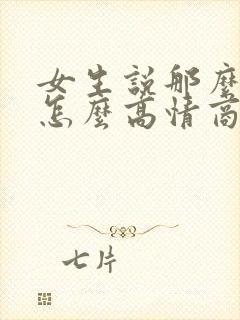 女生說那麼
怎麼高情商
七片